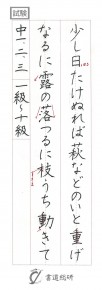 試験
少し日たけぬれば萩などのいと重げ
なるに露の落つるに枝うち動きて
中一、二、三 一級〜十級
書道総研